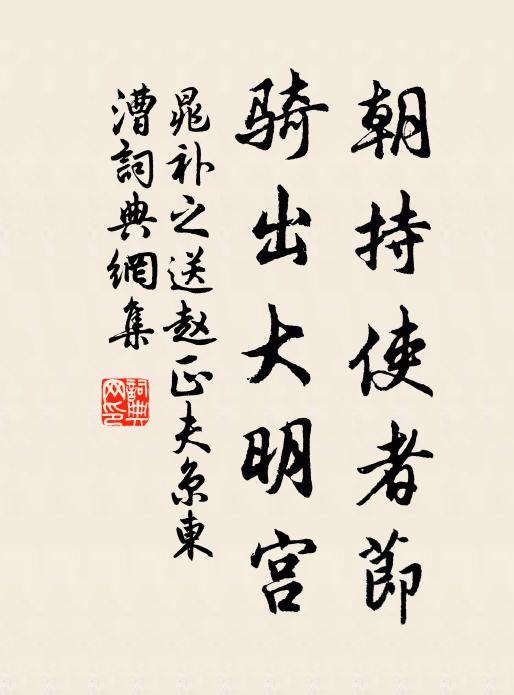 朝持使者節
骑出大明宫
晁补之送赵正夫京東
漕詞典網集
詞典网印